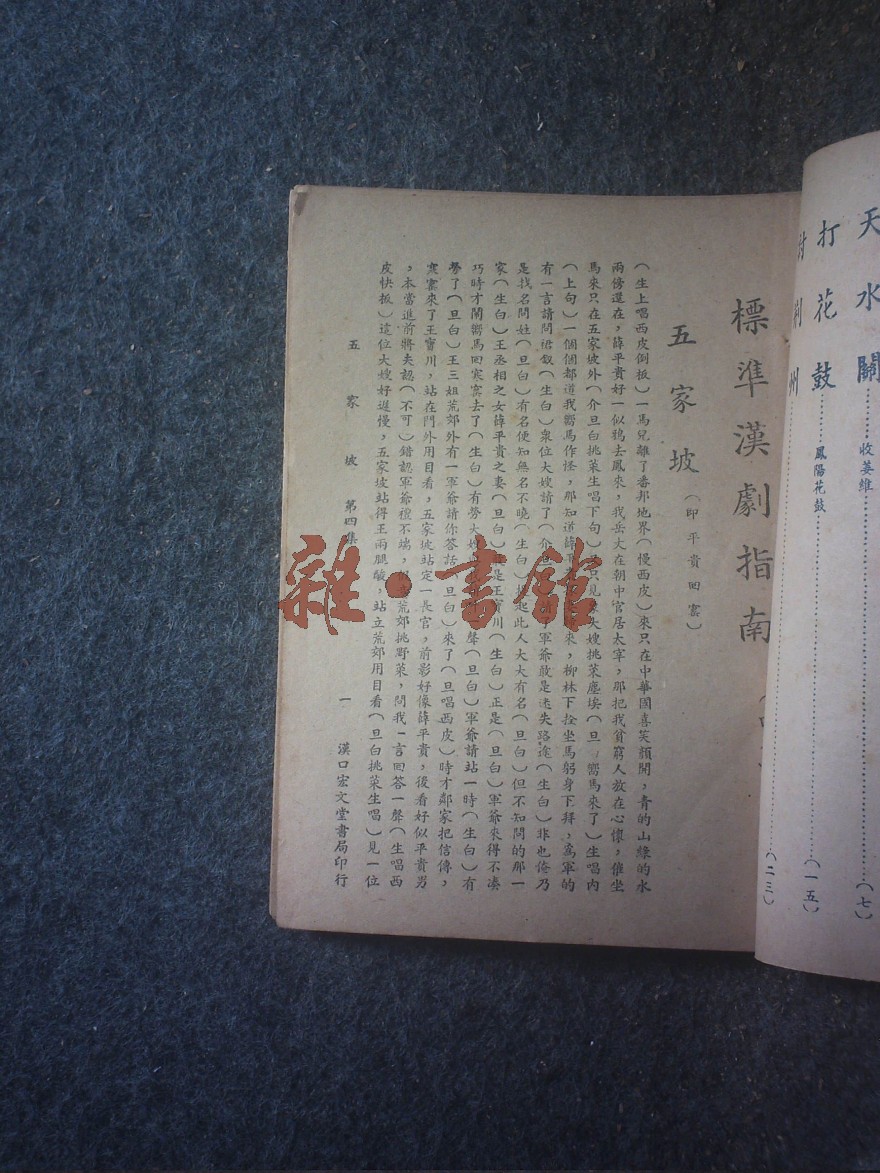 天水關⋯⋯收姜維⋯⋯(七)
打花鼓⋯⋯鳳陽花鼓⋯⋯(一五)
荆州⋯⋯(二三)
標準漢劇指南
五家坡(即平貴回窰)
(生上唱西皮倒扳)一馬兒離了番邦地界(慢西皮)來只在中華國喜笑顏開,青的山綠的水
兩傍還在,薛平貴好一似鴉去鳳來,我岳大在朝中官居太宰,那把我貧窮人放在心懷,催坐
馬來只在五家坡外(介旦白挑菜生唱下句)只見大嫂挑菜塵埃(旦 嚮馬來了)生唱內
(上句)一個個都道我嚮馬作怪,那知道薛平來,柳林下拴坐馬躬身下拜,爲軍的
有一言請問裙釵(生白)衆位大嫂請了(介軍爺敢是迷失路途(生白)非也倦乃
是找名問姓(旦白)有名便知無名不曉(生白)起此人大大有名(旦白)但不知問的那一
家(生白)王丞相之女薛平貴之妻(旦白)是王寶川(生白)正是(旦白)軍爺來得不凑
巧時才鬧嚮馬回寒窰去了(生白)有勞大聲(旦白)軍爺請站一時(生白)有
勞了(旦白)王三姐荒郊外有一軍爺請你答話(旦白)來了(旦唱西皮)時才鄰家把信傳,
寒窰來了王寶川,站在門外用目看,五家坡站定一長官,前影好像薛平貴,後看好似平貴男
,本當進前將夫認(不可)錯認軍爺禮不端,荒郊挑野菜,問我一言回答一聲(生唱西
皮快扳)這位大嫂好遲慢,五家坡站得王兩腿酸,站立荒郊用目看(旦白挑菜生唱)見一位
五家坡 第四集 一 漢口宏文堂書局印行
雜·書館